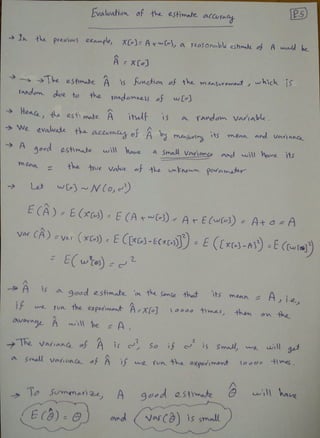 Evaluation of the estimate accuracy
P.5
→ In the previous example, X[0] = A + w[0], a reasonable estimate of A would be
Â = X[0]
→ → The estimate Â is function of the measurement, which is
random due to the randomness of w[0]
→ Hence, the estimate Â itself is a random variable.
→ We evaluate the accuracy of Â by measuring its mean and variance
→ A good estimate will have a small variance and will have its
mean = the true value of the unknown parameter
→ Let w[0] ~ N(0, σ²)
E(Â) = E(X[0]) = E(A + w[0]) = A + E(w[0]) = A + 0 = A
var(Â) = var(X[0]) = E([X[0] - E(X[0])]²) = E([X[0] - A]²) = E((w[0])²)
= E(w²[0]) = σ²
→ Â is a good estimate in the sense that its mean = A, i.e,
if we run the experiment Â = X[0] 10000 times, then on the
average Â will be = A.
→ The variance of Â is σ², so if σ² is small, we will get
a small variance of Â if we run the experiment 10000 times.
→ To summarize, A good estimate θ̂ will have
E(θ̂) = θ and var(θ̂) is small